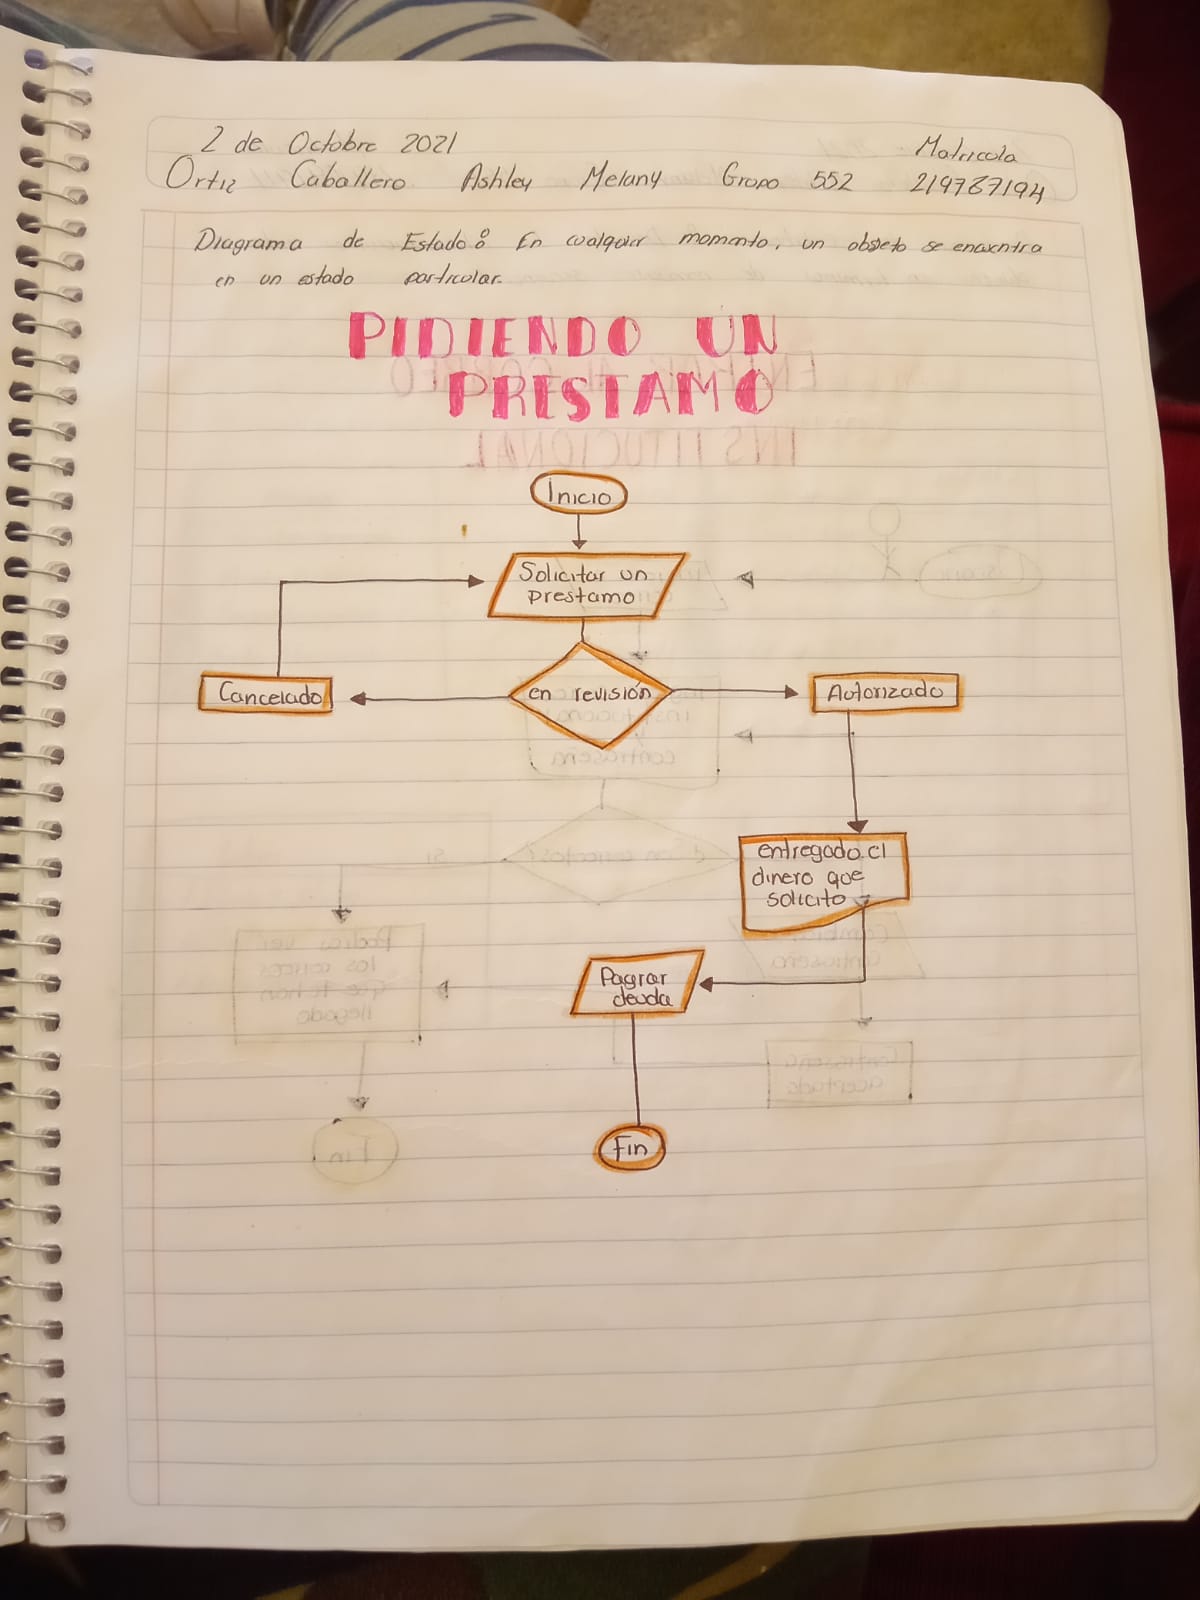 2 de Octobre 2021
Matricola
Ortiz Caballero Ashley Melany Gropo 552 219767194
Diagrama de Estado: En cualquier momento, un objeto se encuentra
en un estado particular.
PIDIENDO UN
PRESTAMO
Inicio
Solicitar un
prestamo
Cancelado
en revisión
Autorizado
entregado el
dinero que
solicito
Pagrar
deuda
Fin